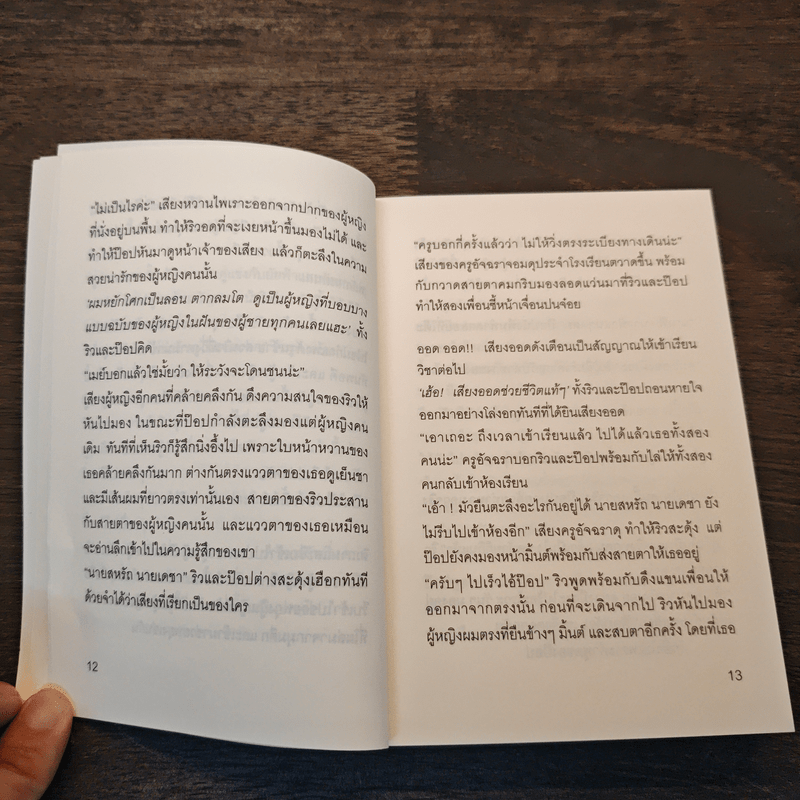 "ไม่เป็นไรค่ะ" เสียงหวานไพเราะออกจากปากของผู้หญิง
ที่นั่งอยู่บนพื้น ทำให้ริวอดที่จะเงยหน้าขึ้นมองไม่ได้ และ
ทำให้ป๊อปหันมาดูหน้าเจ้าของเสียง แล้วก็ตะลึงในความ
สวยน่ารักของผู้หญิงคนนั้น
'ผมหยักโศกเป็นลอน ตากลมโต ดูเป็นผู้หญิงที่บอบบาง
แบบฉบับของผู้หญิงในฝันของผู้ชายทุกคนเลยแฮะ' ทั้ง
ริวและป๊อปคิด
"เมย์บอกแล้วใช่มั้ยว่า ให้ระวังจะโดนชนน่ะ"
เสียงผู้หญิงอีกคนที่คล้ายคลึงกัน ดึงความสนใจของริวให้
หันไปมอง ในขณะที่ป๊อปกำลังตะลึงมองแต่ผู้หญิงคน
เดิม ทันทีที่เห็นริวก็รู้สึกนิ่งอึ้งไป เพราะใบหน้าหวานของ
เธอคล้ายคลึงกันมาก ต่างกันตรงแววตาของเธอดูเย็นชา
และมีเส้นผมที่ยาวตรงเท่านั้นเอง สายตาของริวประสาน
กับสายตาของผู้หญิงคนนั้น และแววตาของเธอเหมือน
จะอ่านลึกเข้าไปในความรู้สึกของเขา
"นายสหรัถ นายเดชา" ริวและป๊อปต่างสะดุ้งเฮือกทันที
ด้วยจำได้ว่าเสียงที่เรียกเป็นของใคร
12
"ครูบอกกี่ครั้งแล้วว่า ไม่ให้วิ่งตรงระเบียงทางเดินน่ะ"
เสียงของครูอัจฉราจอมดุประจำโรงเรียนตวาดขึ้น พร้อม
กับกวาดสายตาคมกริบมองลอดแว่นมาที่ริวและป๊อป
ทำให้สองเพื่อนซี้หน้าเจื่อนปนจ๋อย
ออด ออด!! เสียงออดดังเตือนเป็นสัญญาณให้เข้าเรียน
วิชาต่อไป
'เฮ้อ! เสียงออดช่วยชีวิตแท้ๆ' ทั้งริวและป๊อปถอนหายใจ
ออกมาอย่างโล่งอกทันทีที่ได้ยินเสียงออด
"เอาเถอะ ถึงเวลาเข้าเรียนแล้ว ไปได้แล้วเธอทั้งสอง
คนน่ะ" ครูอัจฉราบอกริวและป๊อปพร้อมกับไล่ให้ทั้งสอง
คนกลับเข้าห้องเรียน
"เอ้า ! มัวยืนตะลึงอะไรกันอยู่ได้ นายสหรัถ นายเดชา ยัง
ไม่รีบไปเข้าห้องอีก" เสียงครูอัจฉราดุ ทำให้ริวสะดุ้ง แต่
ป๊อปยังคงมองหน้ามิ้นต์พร้อมกับส่งสายตาให้เธออยู่
"ครับๆ ไปเร็วไอ้ป๊อป" ริวพูดพร้อมกับดึงแขนเพื่อนให้
ออกมาจากตรงนั้น ก่อนที่จะเดินจากไป ริวหันไปมอง
ผู้หญิงผมตรงที่ยืนข้างๆ มิ้นต์ และสบตาอีกครั้ง โดยที่เธอ
13